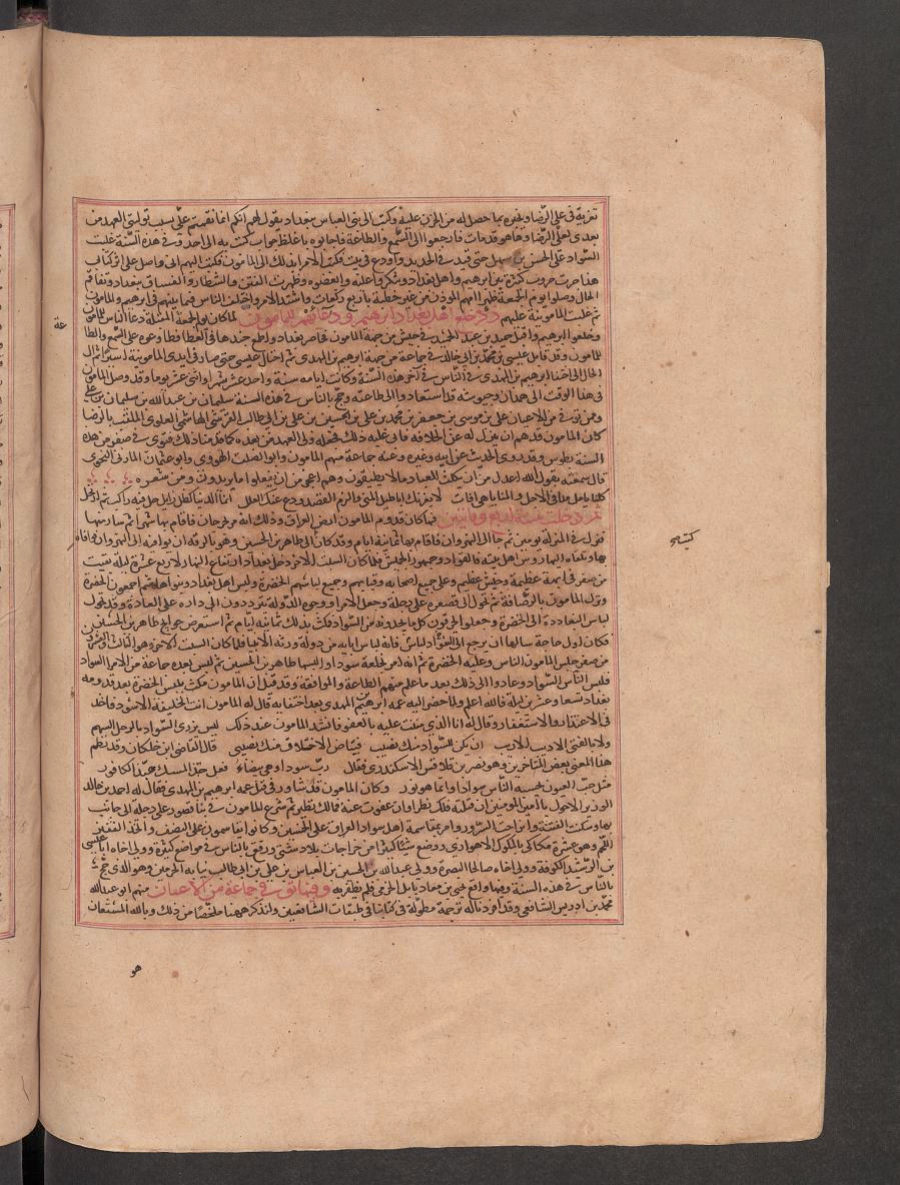 تعزية في علي الرضا ويخبره بما حصل له من الحزن عليه وكتب الى بني العباس ببغداد يقول لهم انكم انما نقمتم علي بسبب توليتي العهد من
بعدي لعلي الرضا وها هو قد مات فارجعوا الى السمع والطاعة فاجابوه باغلظ جواب كتب به الى احد وفي هذه السنة غلبت
السواد على الحسن بن سهل حتى قيد في الحديد واودع في بيت فكتب الامرا بذلك الى المامون فكتب اليهم اني واصل على اثر كتابي
هذا ثم جرت حروب كثيرة بين ابرهيم واهل بغداد وتنكروا عليه وابغضوه وظهرت الفتن والشطار والفساق ببغداد وتفاقم
الحال وصلوا يوم الجمعة ظهرا امهم الموذن من غير خطبة باربع ركعات واشتد الامر واختلف الناس فيما بينهم في ابرهيم والمامون
ثم غلبت المامونية عليهم ذكر خلع اهل بغداد ابرهيم ودعائهم للمامون لما كان يوم الجمعة المقبلة دعا الناس للمامون
وخلعوا ابرهيم واقبل حميد بن عبد الحميد في جيش من جهة المامون فحاصر بغداد وطمع جندها في العطا فطاوعوه على السمع والطاعة
للمامون وقد قاتل عيسى بن محمد بن ابي خالد في جماعة من جهة ابرهيم بن المهدي ثم احتال عيسى حتى صار في ايدي المامونية اسيرا ثم ال
الحال الى اختفا ابرهيم بن المهدي في اخر هذه السنة وكانت ايامه سنة واحد عشر شهرا واثني عشر يوما وقد وصل المامون
في هذا الوقت الى همدان وجيوشه قد استعادوا الى طاعته وحج بالناس في هذه السنة سليمان بن عبد الله بن سليمان بن علي
وممن توفي من الاعيان علي بن موسى بن جعفر بن محمد بن علي بن الحسين بن علي بن ابي طالب القرشي الهاشمي العلوي الملقب بالرضا
كان المامون قد هم ان ينزل له عن الخلافة فابى عليه ذلك فجعله ولي العهد من بعده كما قدمنا ذلك فتوفي في صفر من هذه
السنة بطوس وقد روى الحديث عن ابيه وغيره وعنه جماعة منهم المامون وابو الصلت الهروي وابو عثمان المازني النحوي
قال سمعته يقول الله اعدل من ان يكلف العباد ما لا يطيقون وهم اعجز من ان يفعلوا ما يريدون ومن شعره
كلنا يامل مدا في الاجل والمنايا هن افات الامل لا يغرنك اباطيل المنى والزم القصد ودع عنك العلل انما الدنيا كظل زايل حل فيه راكب ثم ارتحل
ثم دخلت سنة اربع ومايتين فيها كان قدوم المامون ارض العراق وذلك انه مر بجرجان فاقام بها شهرا ثم سار منها
فنزل في المنزلة يومين ثم جا الى النهروان فاقام بها ثمانية ايام وقد كان كتب الى طاهر بن الحسين وهو بالرقة ان يوافيه الى النهروان فوافاه
بها وتلقاه وجوه اهل بيته والقواد وجمهور الجيش فلما كان السبت الاخر دخل بغداد ارتفاع النهار لاربع عشرة ليلة بقيت
من صفر في ابهة عظيمة وجيش عظيم وعلى جميع اصحابه وقبابهم وجميع لباسهم الخضرة ولبس اهل بغداد وبنو هاشم اجمعون الخضرة
ونزل المامون بالرصافة ثم تحول الى قصره على دجلة وجعل الامرا ووجوه الدولة يترددون الى داره على العادة وقد تحول
لباس البغاددة الى الخضرة وجعلوا يحرقون كل ما يجدونه من السواد فمكث بذلك ثمانية ايام ثم استعرض حوايج طاهر بن الحسين
فكان اول حاجة سالها ان يرجع الى السواد لباس ابايه من دولة ورثة الانبيا فلما كان السبت الاخر وهو الثالث والعشرين
من صفر جلس المامون للناس وعليه الخضرة ثم انه امر بخلعة سودا والبسها طاهر بن الحسين ثم البس بعده جماعة من الامرا السواد
فلبس الناس السواد وعادوا الى ذلك بعد ما علم منهم الطاعة والموافقة وقد قيل ان المامون مكث يلبس الخضرة بعد قدومه
بغداد تسعا وعشرين ليلة فالله اعلم ولما حضر اليه عمه ابرهيم بن المهدي بعد اختفايه قال له المامون انت الخليفة الاسود فاخذ
في الاعتذار والاستغفار وقال له انا الذي مننت عليه بالعفو فانشد المامون عند ذلك ليس يزري السواد بالرجل الشهم
ولا بالفتى الاديب الاريب ان يكن للسواد منك نصيب فبياض الاخلاق منك نصيبي قال القاضي ابن خلكان وقد نظم
هذا المعنى بعض المتاخرين وهو نصر بن قلاقس الاسكندري فقال رب سودا وهي بيضاء فعل حسد المسك عندها الكافور
مثل حب العيون يحسبه الناس سوادا وانما هو نور وكان المامون قد شاور في قتل عمه ابرهيم بن المهدي فقال له احمد بن خالد
الوزير الاحول يا امير المومنين ان قتلته فلك نظرا وان عفوت عنه فما لك نظير ثم شرع المامون في بنا قصور على دجلة الى جانب
 وسكنت الفتنة وانزاحت الشرور وامر بمقاسمة اهل السواد على الخمسين وكانوا يقاسمون على النصف واتخذ القفيز
الملجم وهو عشرة مكاكي بالمكوك الاهوازي ووضع شيئا كثيرا من خراجات بلاد شتى ورفق بالناس في مواضع كثيرة وولى اخاه ابا عيسى
بن الرشيد الكوفة وولى اخاه صالحا البصرة وولى عبيد الله بن الحسين بن العباس بن علي بن ابي طالب نيابة الحرمين وهو الذي حج
بالناس في هذه السنة وفيها واقع يحيى بن معاذ بابك الخرمي فلم يظفر به وفيها توفي جماعة من الاعيان منهم ابو عبد الله
محمد بن ادريس الشافعي وقد افردنا له ترجمة مطولة في كتابنا في طبقات الشافعيين ولنذكر ههنا ملخصا من ذلك وبالله المستعان
هو